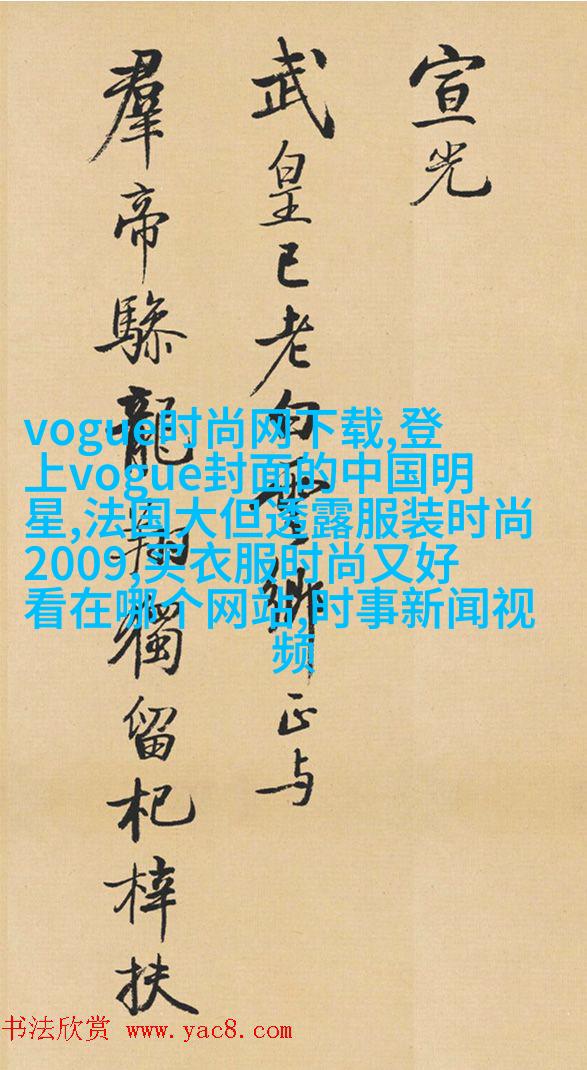 宣光
武皇已老白雲鄉正与
羣帝驂龍翔獨留杞梓扶
vogue时尚网下载,登
上vogue封面的中国明
星,法国大但透露服装时尚
2009,买衣服时尚又好
看在哪个网站,时事新闻视
频
书法欣赏 www.yac8.com